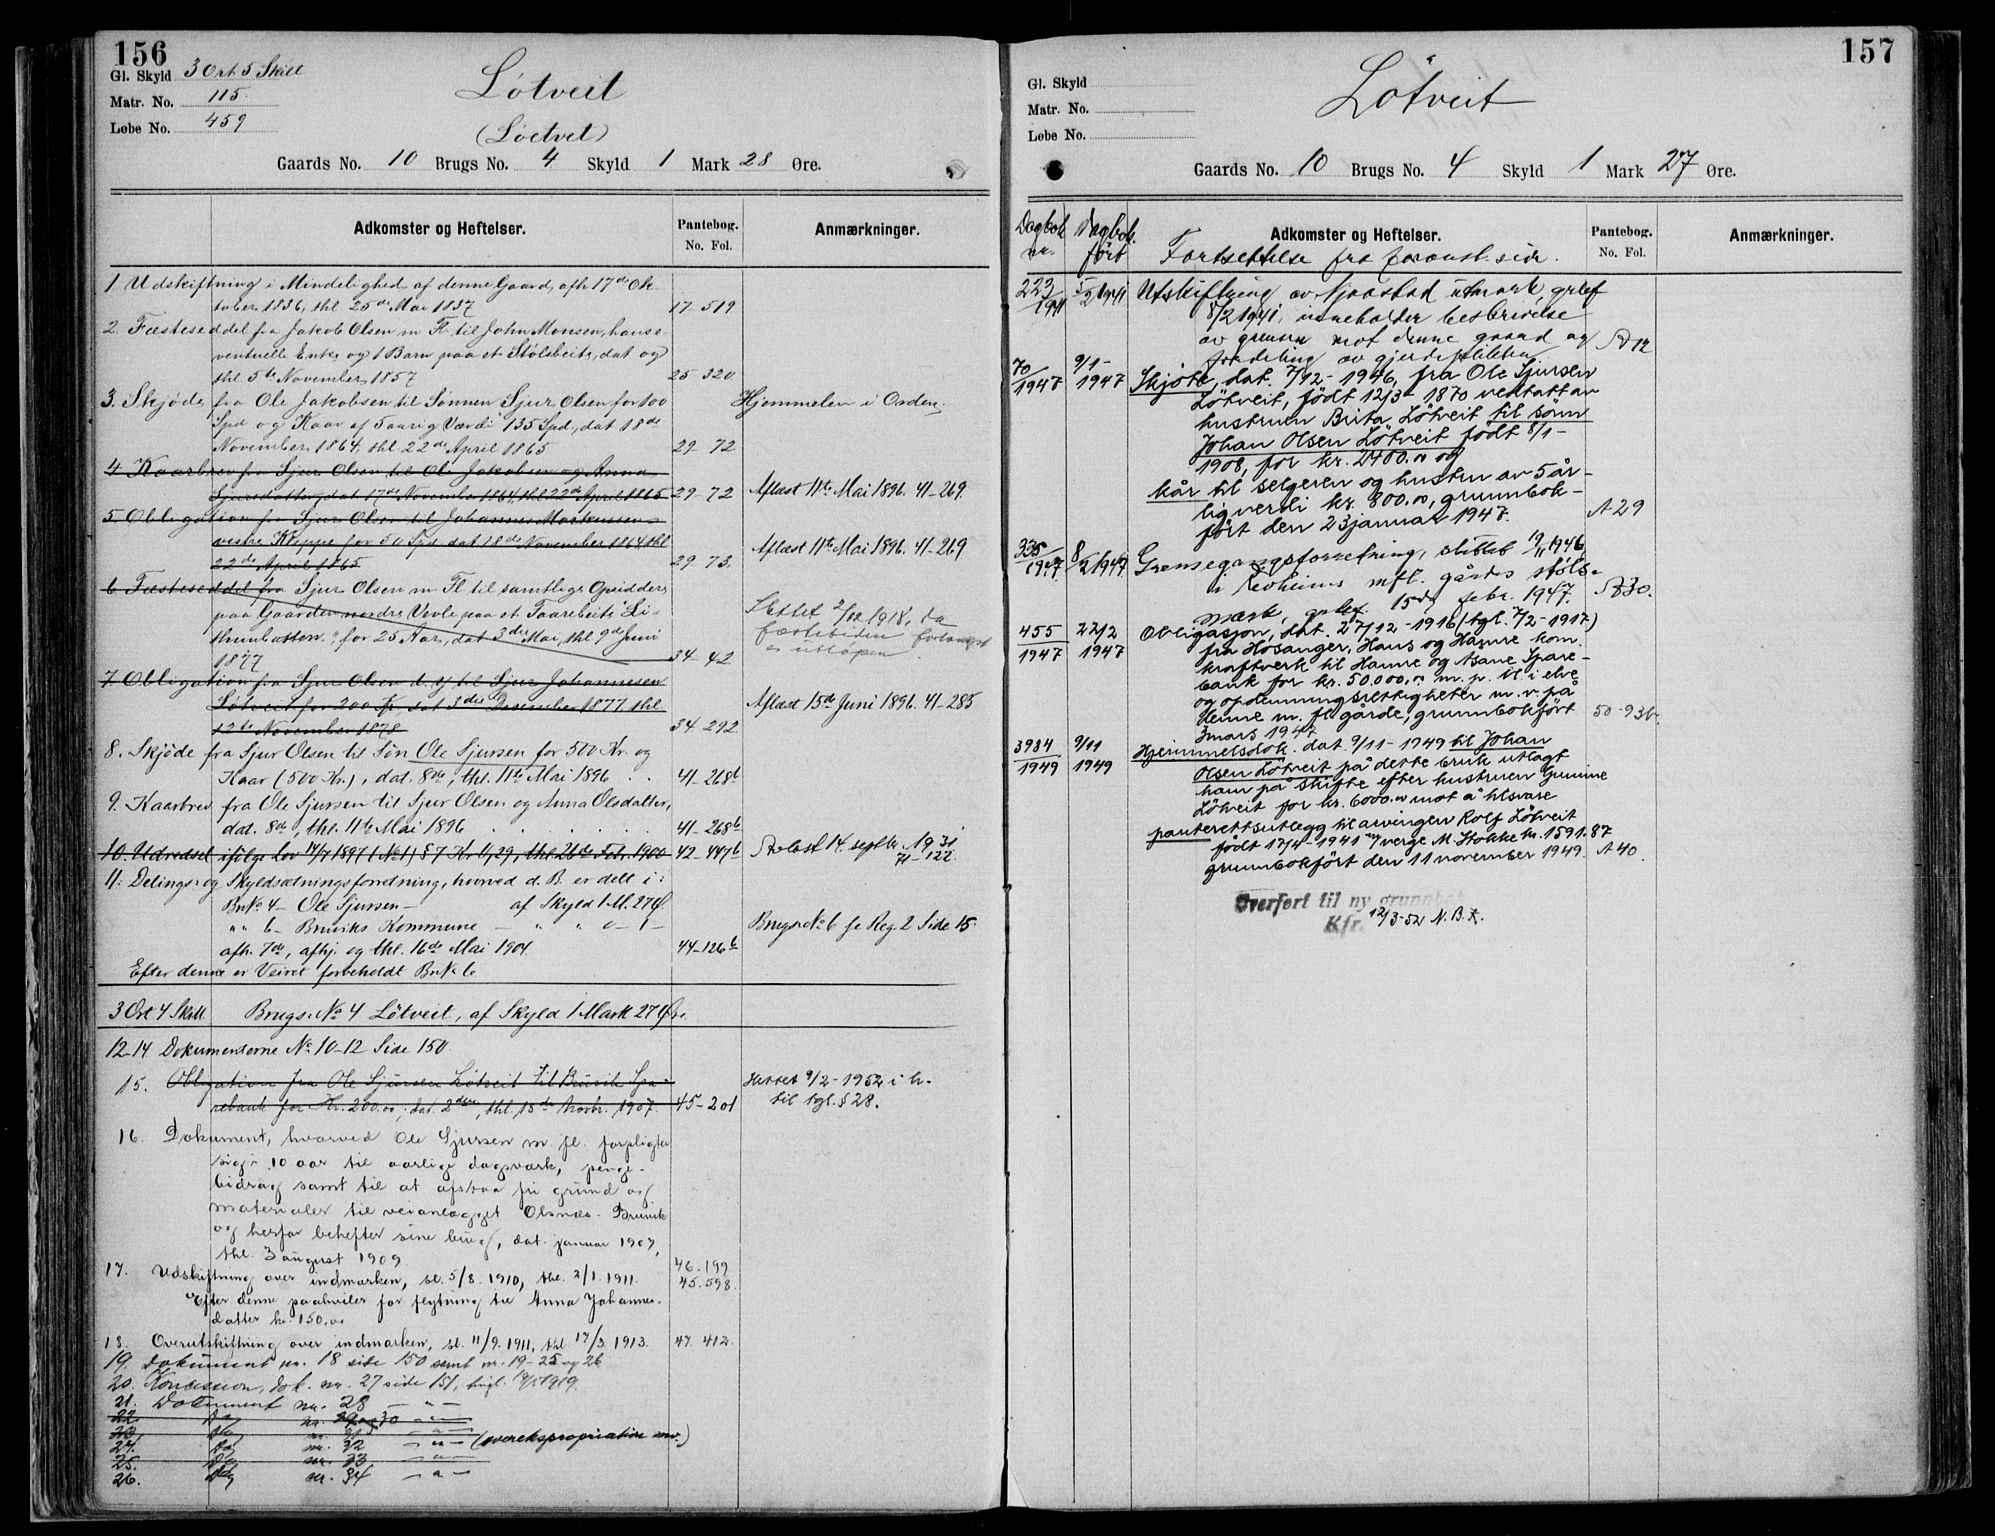 156
Gl. Skyld 3 Ort 5 Skill
Matr. No. 115.
Løbe No. 459
Løtveit
(Løetvet)
Gaards No. 10 Brugs No. 4 Skyld 1 Mark 28 Øre.
Adkomster og Heftelser.
Pantebog.
No. Fol.
Anmærkninger.
1. Udskiftning i Mindelighed af denne Gaard, afh. 17de Ok-
tober 1836, thl. 25de Mai 1837 17-519
2. Fæsteseddel fra Jakob Olsen m. Fl. til John Monsen, hans e-
ventuelle Enke og 1 Barn paa et Stølsbeite, dat og
thl 5te November 1857 25-320
3. Skjøde fra Ole Jakobsen til Sønnen Sjur Olsen for 100 Hjemmelen i Orden.
Spd og Kaar af 5aarig Værdi 135 Spd., dat 18de
November 1864, thl. 22de April 1865 29-72
4. Kaarbrev fra Sjur Olsen til Ole Jakobsen og Anna
Sjursdatter, dat. 17de November 1864, thl. 22de April 1865 29-72 Aflæst 11te Mai 1896. 41-269.
5. Obligation fra Sjur Olsen til Johannes Markussen
vestre Kleppe for 50 Spd. dat 18de November 1864 thl
22de April 1865 29-73. Aflæst 11te Mai 1896. 41-269
6. Fæsteseddel fra Sjur Olsen m Fl til samtlige Opsiddere
paa Gaarden nordre Vevle paa et Faarebeite i Li-
thunbotten, for 25 Aar, dat 3die Mai, thl 9de Juni
1877 34-42
Slettet 2/12 1918, da
fæstetiden forlængst
er utløpen
7. Obligation fra Sjur Olsen d. y. til Sjur Johannesen
Løtveit for 200 Kr. dat 3die Desember 1877 thl.
12te November 1878 34-292 Aflæst 15de Juni 1896. 41-285
8. Skjøde fra Sjur Olsen til Søn Ole Sjursen for 500 Kr. og
Kaar (500 Kr.), dat. 8de, thl. 11te Mai 1896 . . 41-268b
9. Kaarbrev fra Ole Sjursen til Sjur Olsen og Anna Olsdatter,
dat. 8de, thl. 11te Mai 1896 . . . . . . 41-268b
10. Udredsel ifølge Lov 14/7 1897 (No 1) § 7 Kr 11,29, thl. 26de Feb. 1900 42-447b Avlæst 14. septbr. 1931
71-122.
11. Delings- og Skyldsætningsforretning, hvorved d. B. er delt i:
Br.No. 4 - Ole Sjursen - af Skyld 1 M. 27 Ø.
" " 6 - Bruviks Kommune - " " 0 - 1 - Brugs No 6 se Reg. 2 Side 15.
afh. 7de, afhj. og thl. 16de Mai 1904. 44-126b
Efter denne er Veiret forbeholdt Br.No. 6
3 Ort 4 Skill Brugs-No 4 Løtveit, af Skyld 1 Mark 27 Øre.
12-14 Dokumenterne No. 10-12 Side 150.
15. Obligation fra Ole Sjursen Løtveit til Bruvik Spa-
rebank for Kr. 200.00, dat. 2den, thl. 18de Novbr. 1907. 45-201
Slettet 9/2-1952 i h.
til tgl. § 28.
16. Dokument, hvorved Ole Sjursen m. fl. forpligter
sig i 10 aar til aarlige dagsværk, penge-
bidrag samt til at afstaa fri grund og
materialer til veianlægget Olsnes - Bruvik
og herfor behefter sine brug, dat. januar 1907,
thl. 3 august 1909. 46.199
17. Udskiftning over indmarken, sl. 5/8. 1910, thl. 2/1. 1911. 45.598
Efter denne paahviler for flytning til Anna Johannes-
datter kr. 150.00
18. Overutskiftning over indmarken, sl. 11/9. 1911, thl 17/3. 1913. 47. 412.
19. Dokument nr. 18 side 150 samt nr. 19-25 og 26
20. Konsession, dok. nr. 27 side 151, tingl. 1919.
21. Dokument nr. 28 - " -
22. Do nr. 29 og 30 - " -
23. Do nr. 31 - " -
24. Do nr. 32 - " - (overekspropriation mv.)
25. Do nr. 33 - " -
26. Do nr. 34 - " -
157
Gl. Skyld
Matr. No.
Løbe No.
Løtveit
Gaards No. 10 Brugs No. 4 Skyld 1 Mark 27 Øre.
Dagbok nr.
Dagbok ført
Adkomster og Heftelser.
Fortsettelse fra foranst. side.
Pantebog.
No. Fol.
Anmærkninger.
223/1941 5/2 1941 Utskiftning av Njaastad utmark, grlest
8/2 1941, inneholder beskrivelse
av grensen mot denne gaard og
fordeling av gjerdeplikten A 12
70/1947 9/1-1947 Skjøte, dat. 7/12-1946, fra Ole Sjursen
Løtveit, født 12/3-1870 vedtatt av
hustruen Brita Løtveit til sønn
Johan Olsen Løtveit født 8/1-
1908, for kr. 2400.00 og
kår til selgeren og hustru av 5 år-
lig verdi kr. 800.00, grunnbok-
ført den 23 januar 1947. A 29
335/1947 8/2 1947 Grensegangsforretning, sluttet 19/11 1946,
i Redheims mfl. gårdes støls-
mark, gr.lest. 15de febr. 1947. A 30.
455/1947 22/2 1947 Obligasjon, dat. 27/12-1916 (tgl. 7/2-1917)
fra Hosanger, Haus og Hamre kom.
kraftverk til Hamre og Åsane Spare-
bank for kr. 50.000,00 m. p. bl. i elve
og opdemningsrettigheter m. v. på
Henne m. fl. gårde, grunnbokført
3 mars 1947. 50-936.
3984/1949 9/11 1949 Hjemmelsdok. dat. 9/11-1949 til Johan
Olsen Løtveit på dette bruk utlagt
ham på skifte efter hustruen Gunnine
Løtveit for kr. 6000.00 mot å tilsvare
panterettsutlegg til arvingen Rolf Løtveit
født 17/4-1941 v/verge M. Stokke kr. 1591.87
grunnbokført den 11 november 1949. A 40.
Overført til ny grunnbok
Kfr. 12/3-52 N.B.K.